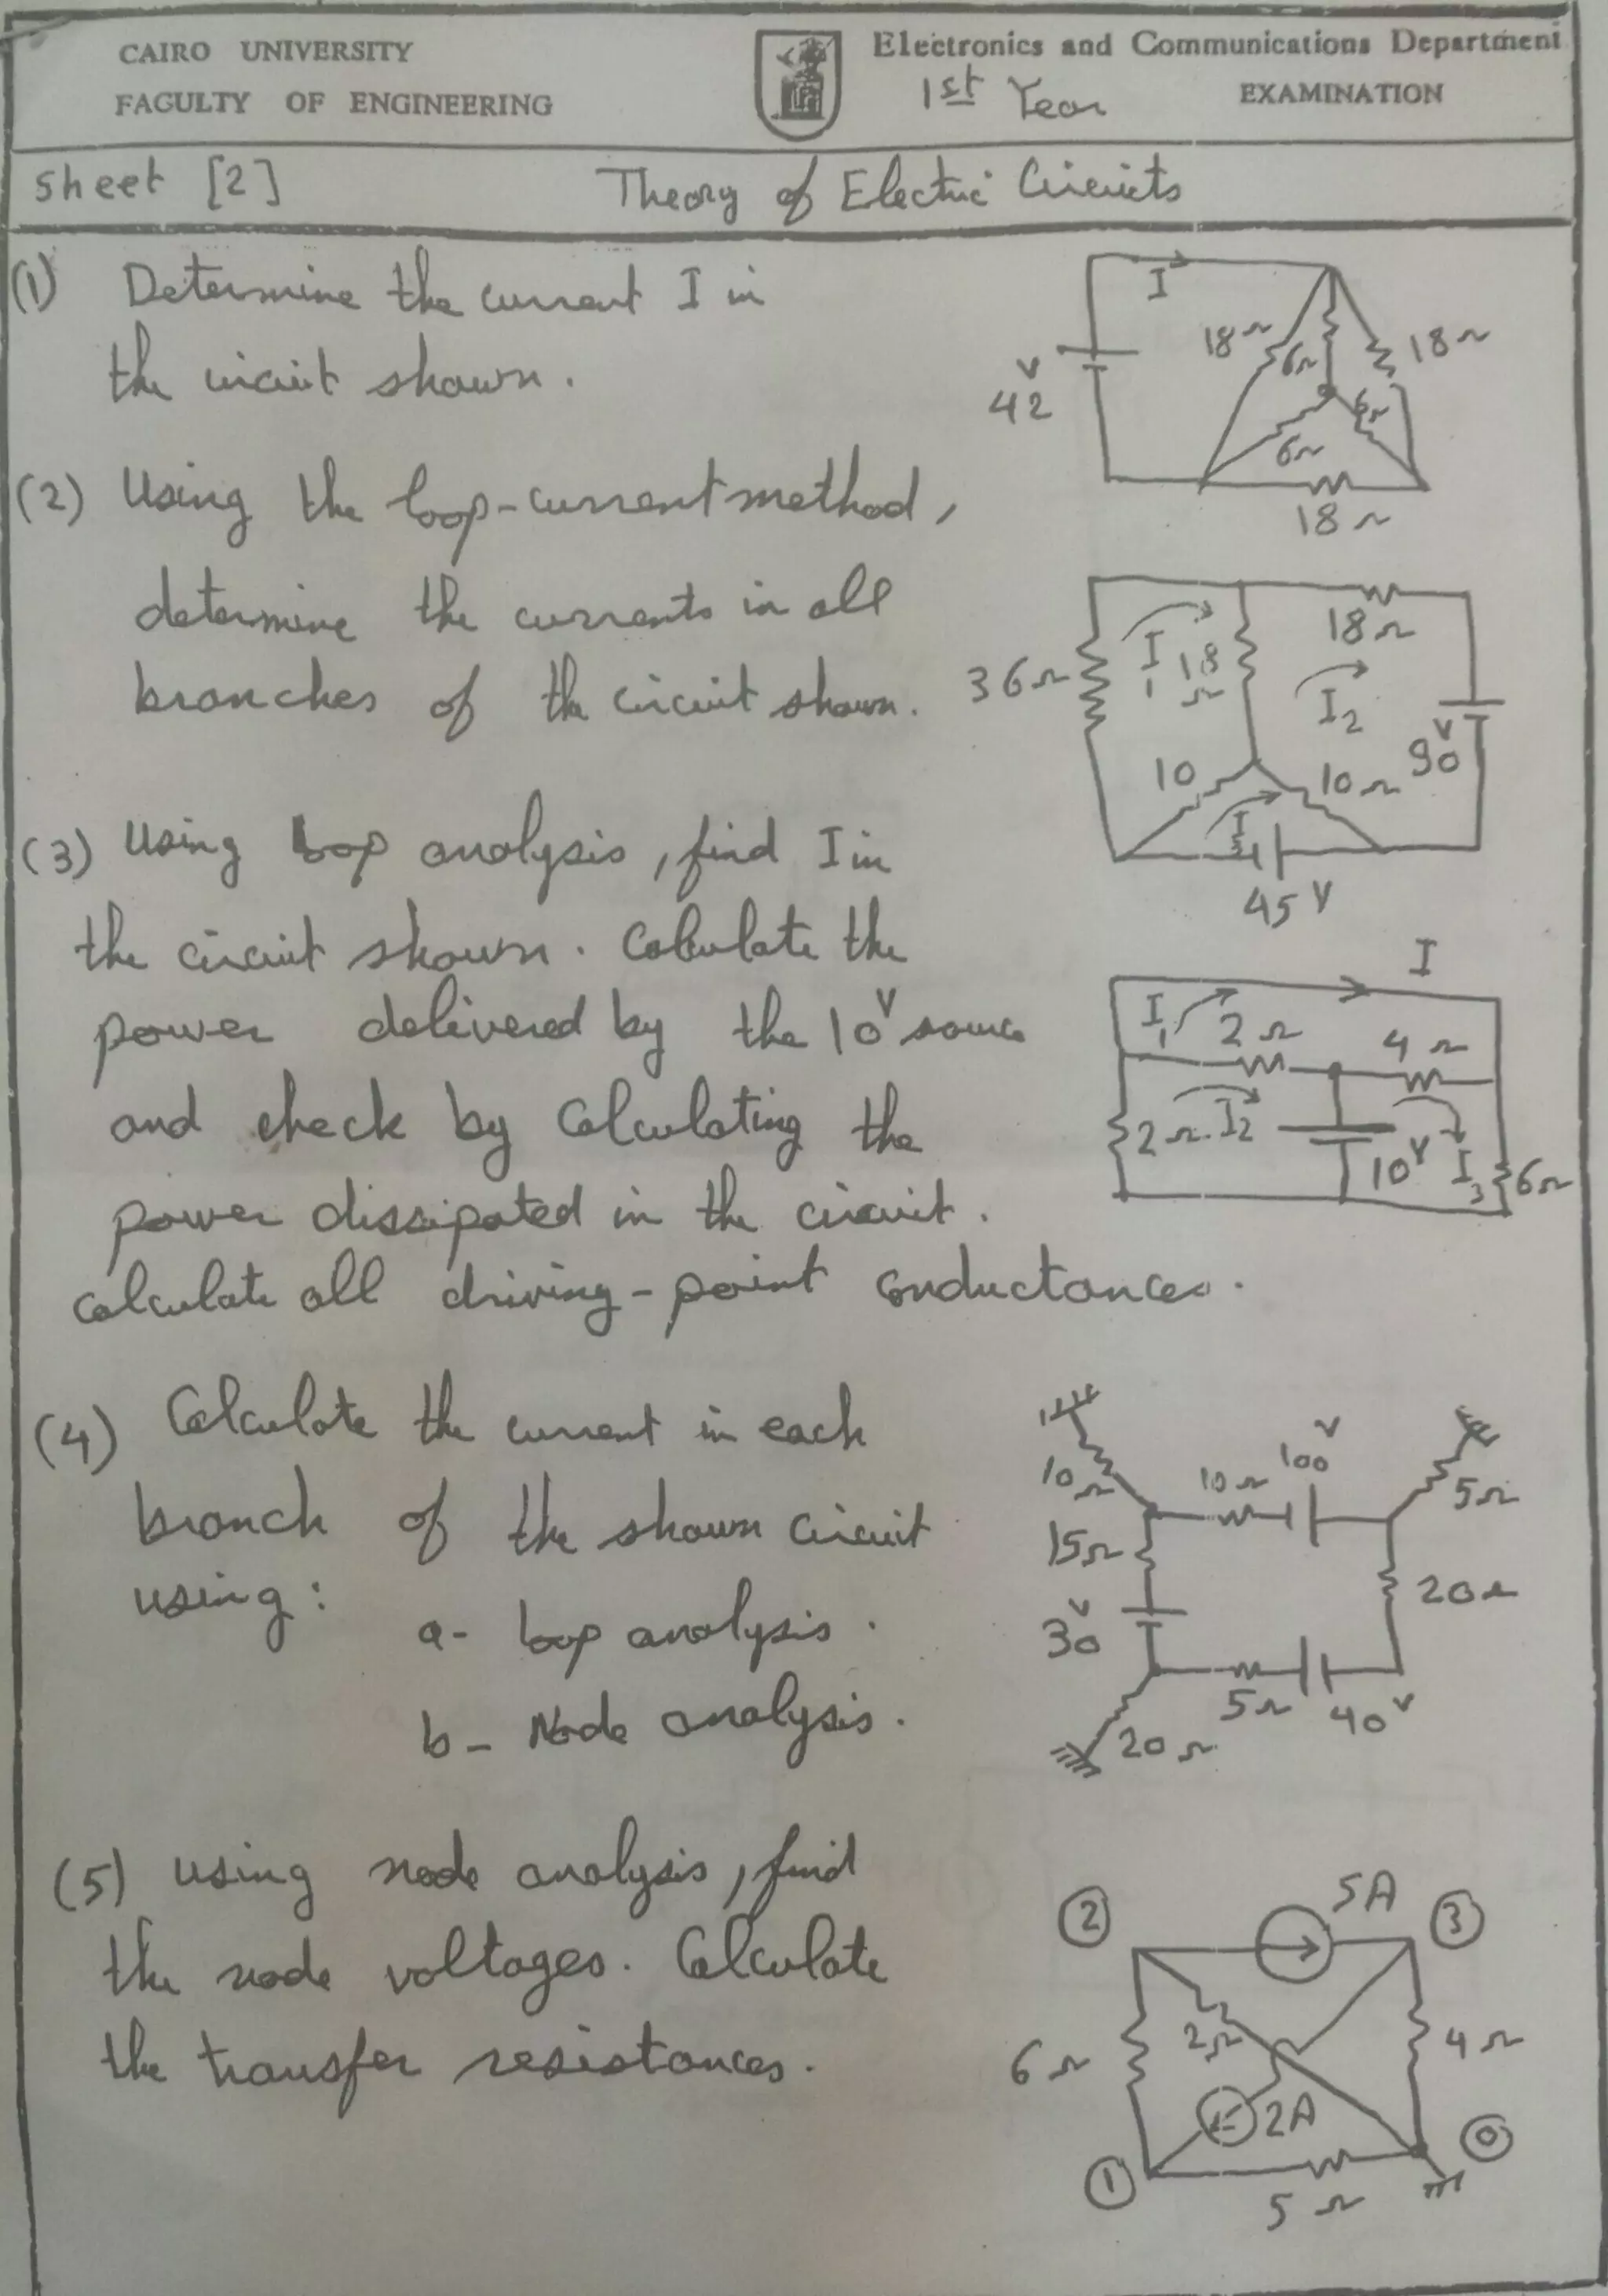 CAIRO UNIVERSITY
FACULTY OF ENGINEERING
Electronics and Communications Department
1st Year EXAMINATION
Sheet [2] Theory of Electric Circuits
(1) Determine the current I in
the circuit shown.
I
18Ω 6Ω 18Ω
42 V
6Ω 6Ω
18Ω
(2) Using the loop-current method,
determine the currents in all
branches of the circuit shown.
18Ω
36Ω I1 18Ω I2
90 V
10 10Ω
I3
45 V
(3) Using loop analysis, find I in
the circuit shown. Calculate the
power delivered by the 10 V source
and check by calculating the
power dissipated in the circuit.
calculate all driving-point conductances.
I
I1 2Ω 4Ω
2Ω I2 10 V I3 6Ω
(4) Calculate the current in each
branch of the shown circuit
using: a- loop analysis.
b- Node analysis.
10Ω 10Ω 100 V 5Ω
15Ω 20Ω
30 V
5Ω 40 V
20Ω
(5) Using node analysis, find
the node voltages. Calculate
the transfer resistances.
2 5A 3
6Ω 2Ω 4Ω
2A
1 5Ω 0